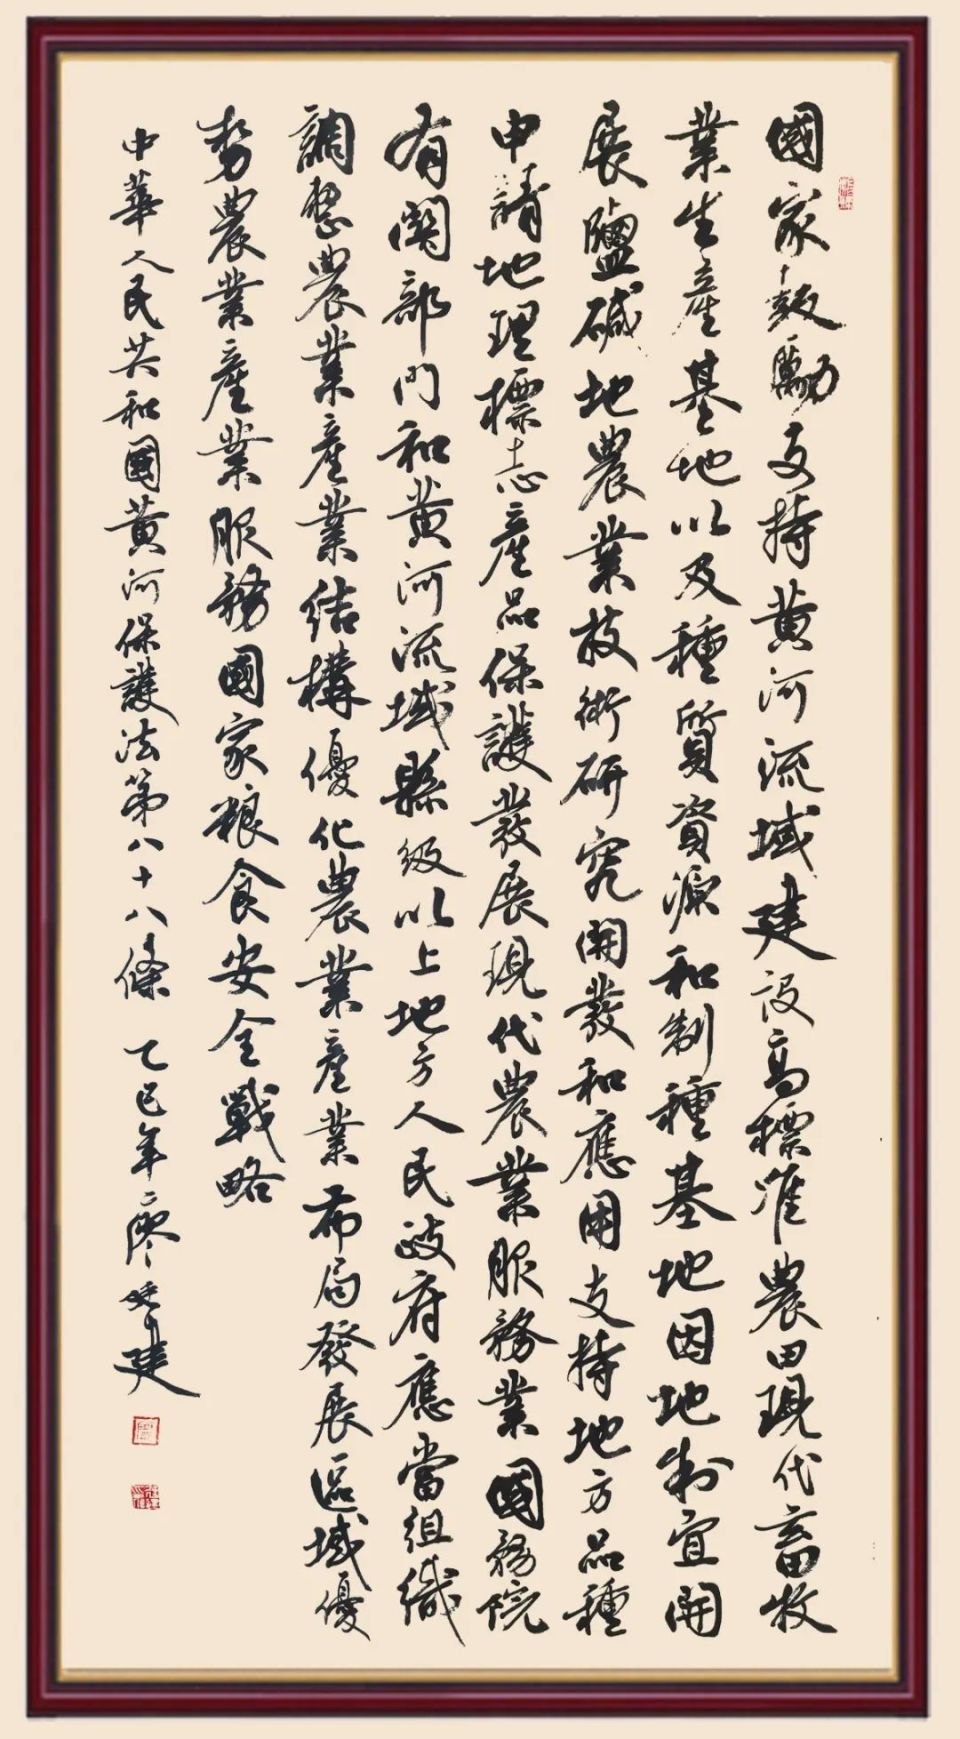 國家鼓勵支持黃河流域建设高標准農田現代畜牧
業生產基地以及種質資源和制種基地因地制宜開
展鹽碱地農業技術研究開發和應用支持地方品種
申請地理標志產品保護發展現代農業服務業國務院
有関部门和黃河流域縣级以上地方人民政府應當組織
調整農業產業结構優化農業產業布局發展區域優
势農業產業服務國家粮食安全戰略
中華人民共和國黃河保護法第八十八條 乙巳年 廖 建